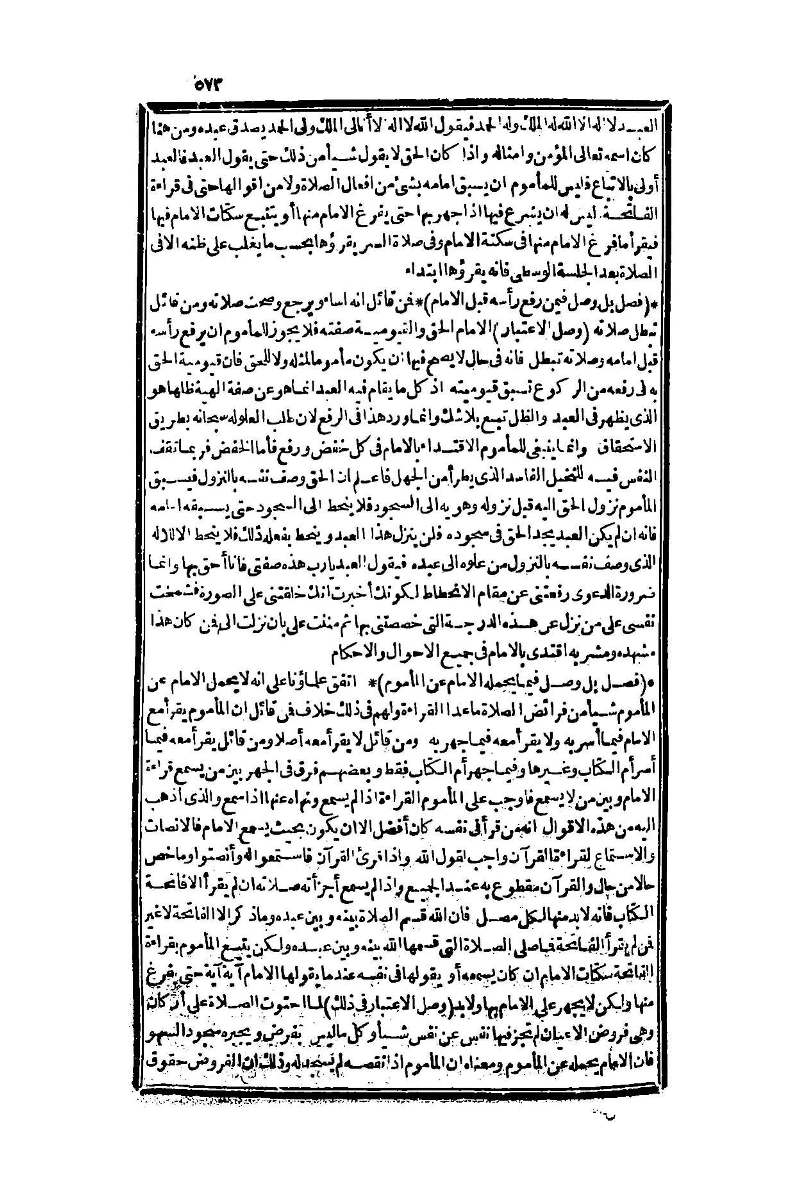 ٥٧٣
العبد لا اله الا الله له الملك وله الحمد فيقول الله لا اله الا أنا لى الملك ولى الحمد يصدق عبده ومن هنا
كان اسمه تعالى المؤمن وامثاله واذا كان الحق لا يقول شيأ من ذلك حتى يقول العبد فالعبد
أولى بالاتباع فليس للمأموم ان يسبق امامه بشئ من افعال الصلاة ولا من اقوالها حتى فى قراءة
الفاتحة ليس له ان يشرع فيها اذا جهر بها حتى يفرغ الامام منها أو يتتبع سكتات الامام فيها
فيقرأ ما فرغ الامام منها فى سكتة الامام وفى صلاة السر يقرؤها بحسب ما يغلب على ظنه الا فى
الصلاة بعد الجلسة الوسطى فانه يقرؤها ابتداء
*(فصل بل وصل فيمن رفع رأسه قبل الامام)* فمن قائل انه اساء ويرجع وصحت صلاته ومن قائل
تبطل صلاته (وصل الاعتبار) الامام الحق والقيومية صفته فلا يجوز للمأموم ان يرفع رأسه
قبل امامه وصلاته تبطل فانه فى حال لا يصح فيها ان يكون مأموما لمثله ولا للحق فان قيومية الحق
به فى رفعه من الركوع تسبق قيوميته اذ كل ما يقام فيه العبد انما هو عن صفة الهية ظلها هو
الذى يظهر فى العبد والظل تبع بلا شك وانما ورد هذا فى الرفع لان طلب العلو له سبحانه بطريق
الاستحقاق وانما ينبغى للمأموم الاقتداء بالامام فى كل خفض ورفع فأما الخفض فربما تقف
النفس فيه للتخيل الفاسد الذى يطرأ من الجهل فاعلم ان الحق وصف نفسه بالنزول فيسبق
المأموم نزول الحق اليه قبل نزوله وهويه الى السجود فلا ينحط الى السجود حتى يسبقه امامه
فانه ان لم يكن العبد يجد الحق فى سجوده فلمن ينزل هذا العبد وينحط بفعله ذلك فلا ينحط الا للاله
الذى وصف نفسه بالنزول من علوه الى عبده فيقول العبد يارب هذه صفتى فانا أحق بها وانما
ضرورة الدعوى رفعتنى عن مقام الانحطاط لكونك أخبرت انك خلقتنى على الصورة فشمخت
نفسى على من نزل عن هذه الدرجة التى خصصتنى بها ثم مننت على بان نزلت الى فمن كان هذا
مشهده ومشربه اقتدى بالامام فى جميع الاحوال والاحكام
*(فصل بل وصل فيما يحمله الامام عن المأموم)* اتفق علماؤنا على انه لا يحمل الامام عن
المأموم شيأ من فرائض الصلاة ما عدا القراءة ولهم فى ذلك خلاف فمن قائل ان المأموم يقرأ مع
الامام فيما أسر به ولا يقرأ معه فيما جهر به ومن قائل لا يقرأ معه أصلا ومن قائل يقرأ معه فيما
أسر أم الكتاب وغيرها وفيما جهر أم الكتاب فقط وبعضهم فرق فى الجهر بين من يسمع قراءة
الامام وبين من لا يسمع فاوجب على المأموم القراءة اذا لم يسمع ونهاه عنها اذا سمع والذى اذهب
اليه من هذه الاقوال انه من قرأ فى نفسه كان أفضل الا ان يكون بحيث يسمع الامام فالانصات
والاستماع لقراءة القرآن واجب لقول الله واذا قرئ القرآن فاستمعوا له وأنصتوا وما خص
حالا من حال والقرآن مقطوع به عند الجميع واذا لم يسمع أجزأته صلاته ان لم يقرأ الا فاتحة
الكتاب فانه لا بد منها لكل مصل فان الله قسم الصلاة بينه وبين عبده وما ذكر الا الفاتحة لا غير
فمن لم يقرأ الفاتحة فما صلى الصلاة التى قسمها الله بينه وبين عبده ولكن يتبع المأموم بقراءة
الفاتحة سكتات الامام ان كان يسمعه أو يقولها فى نفسه عندما يقولها الامام آية آية حتى يفرغ
منها ولكن لا يجهر على الامام بها ولا بد (وصل الاعتبار فى ذلك) لما احتوت الصلاة على أركان
وهى فروض الاعيان لم تجز فيها نفس عن نفس شيأ وكل ما ليس بفرض ويجبره سجود السهو
فان الامام يحمله عن المأموم ومعناه ان المأموم اذا نقصه لم يسجد له وذلك ان الفروض حقوق